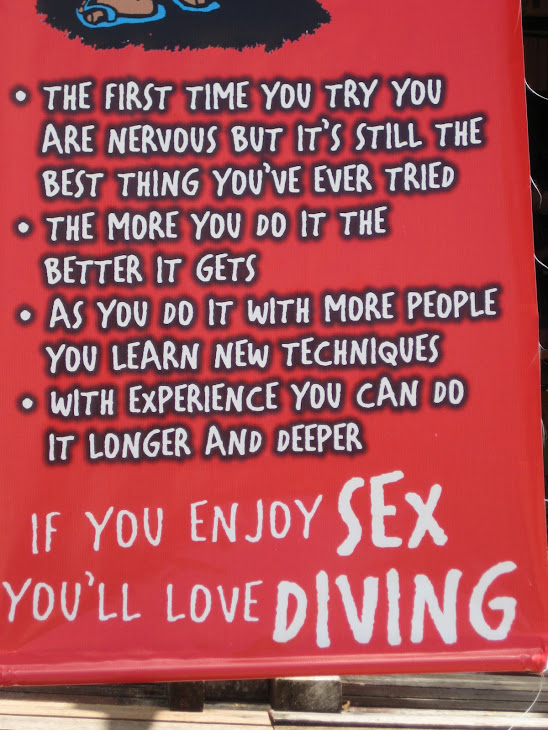 • THE FIRST TIME YOU TRY YOU
ARE NERVOUS BUT IT'S STILL THE
BEST THING YOU'VE EVER TRIED
• THE MORE YOU DO IT THE
BETTER IT GETS
• AS YOU DO IT WITH MORE PEOPLE
YOU LEARN NEW TECHNIQUES
• WITH EXPERIENCE YOU CAN DO
IT LONGER AND DEEPER
IF YOU ENJOY SEX
YOU'LL LOVE DIVING